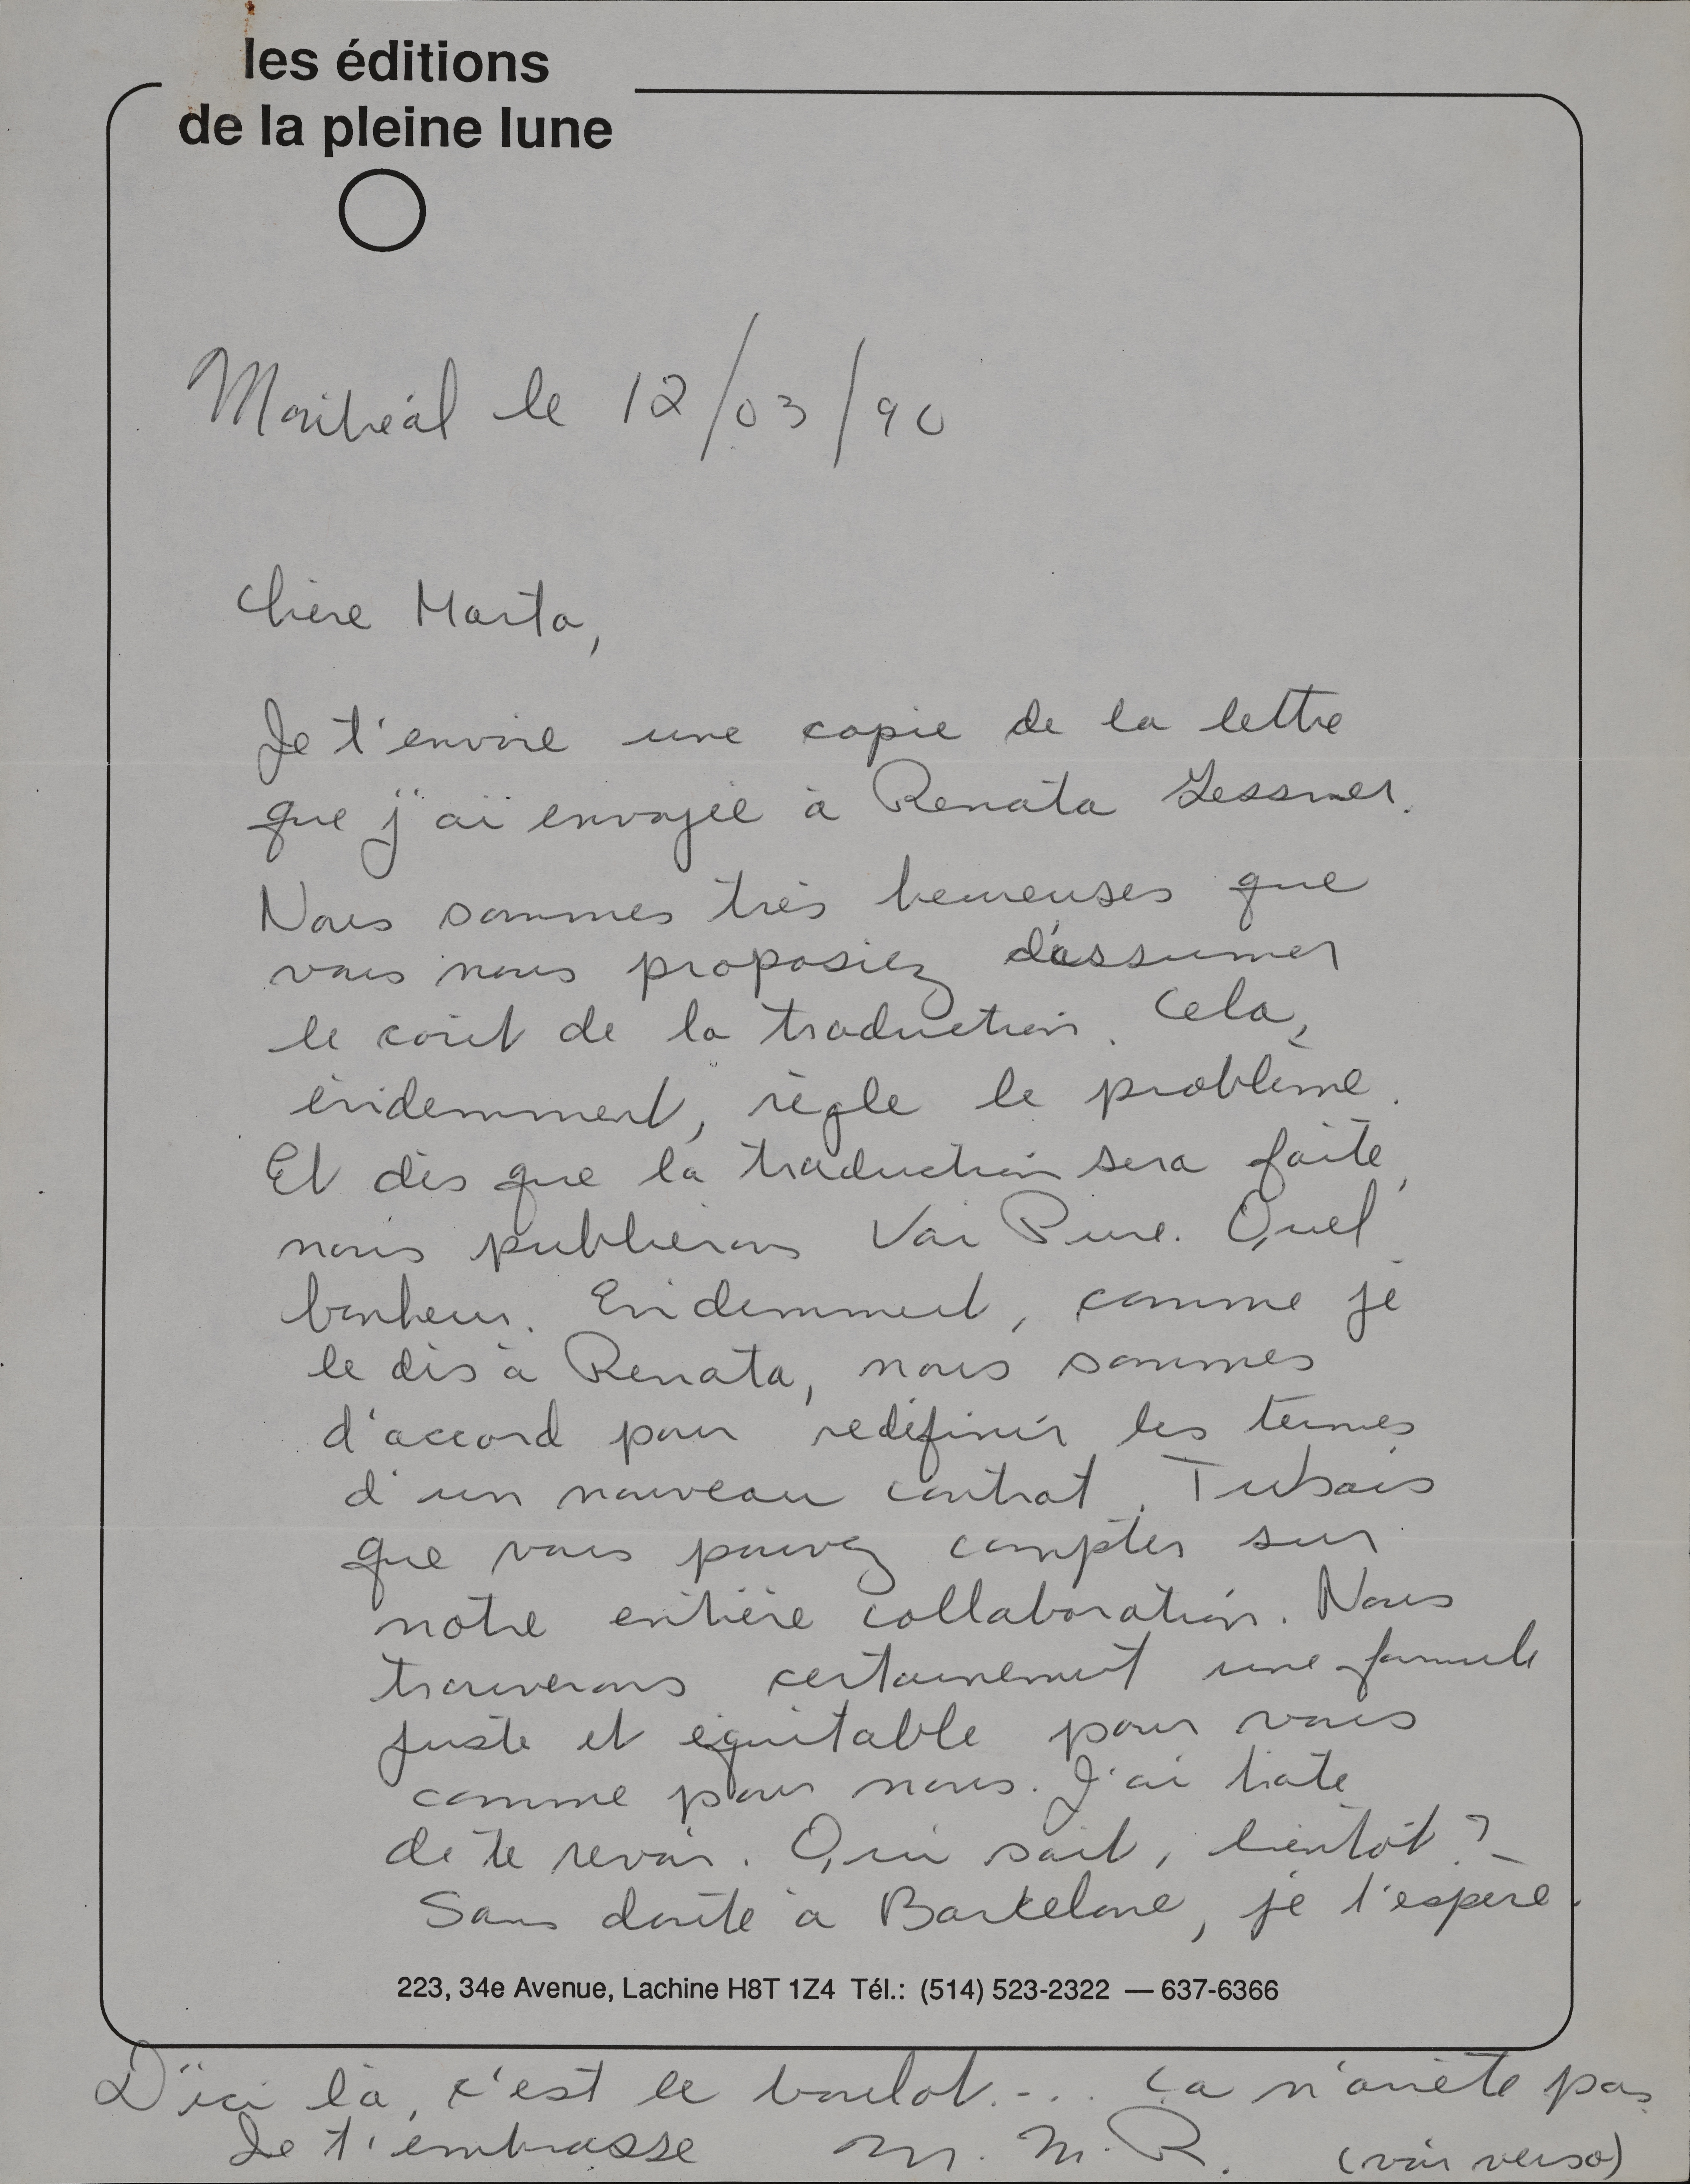 les éditions
de la pleine lune
Montréal le 12/03/90
Chère Marta,
Je t'envoie une copie de la lettre
que j'ai envoyée à Renata Zessner.
Nous sommes très heureuses que
vous nous proposiez d'assumer
le coût de la traduction. Cela,
évidemment, règle le problème.
Et dès que la traduction sera faite,
nous publierons Vai Pure. Quel
bonheur. Evidemment, comme je
le dis à Renata, nous sommes
d'accord pour redéfinir les termes
d'un nouveau contrat. Tu sais
que vous pouvez compter sur
notre entière collaboration. Nous
trouverons certainement une formule
juste et équitable pour vous
comme pour nous. J'ai hâte
de te revoir. Qui sait, bientôt ?
Sans doute à Barcelone, je l'espère.
223, 34e Avenue, Lachine H8T 1Z4 Tél.: (514) 523-2322 — 637-6366
D'ici là, c'est le boulot.... ça n'arrête pas
Je t'embrasse M. M. R. (voir verso)